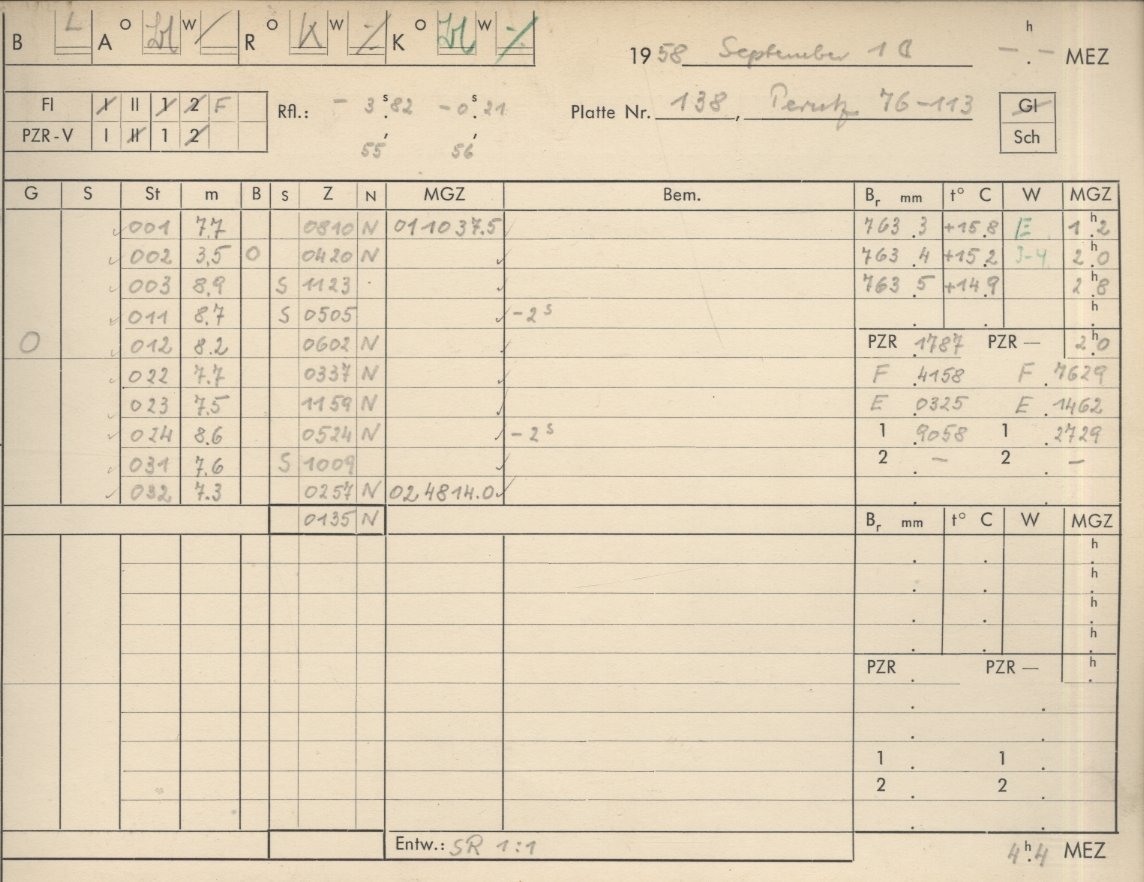 B L A O W / R O K W ⁒ K O W ⁒
1958 September 1 h — . — MEZ
FI I II 1 2 F
Rfl.: - 3ˢ.82 - 0ˢ.21
Platte Nr. 138, Perutz 76-113
Gl
PZR-V I II 1 2
55' 56'
Sch
G S St m B S Z N MGZ Bem. Br mm t° C W MGZ
001 7.7 0810 N 011037.5 763.3 +15.8 E 1h.2
002 3,5 0 0420 N 763.4 +15.2 3-4 2h.0
003 8,9 S 1123 763.5 +14.9 2h.8
011 8,7 S 0505 -2ˢ h
0 012 8.2 0602 N PZR .1787 PZR — 2h.0
022 7.7 0337 N F .4158 F .7629
023 7.5 1159 N E .0325 E .1462
024 8.6 0524 N -2ˢ 1 .9058 1 .2729
031 7.6 S 1009 2 — 2 —
032 7.3 0257 N 024814.0
0135 N Br mm t° C W MGZ
h
h
h
h
PZR . PZR — h
1 . 1 .
2 . 2 .
Entw.: SR 1:1 4h.4 MEZ